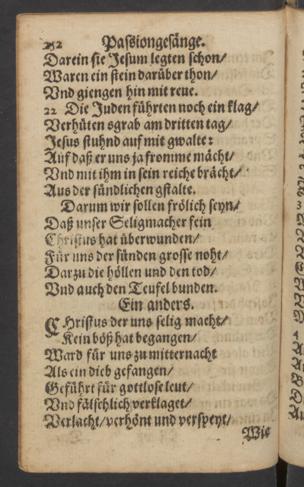 252 Passiongesänge.
Darein sie Jesum legten schon/
Waren ein stein darüber thon/
Vnd giengen hin mit reue.
22 Die Juden führten noch ein klag/
Verhüten sgrab am dritten tag/
Jesus stuhnd auf mit gwalte:
Auf daß er uns ja fromme mächt/
Vnd mit ihm in sein reiche brächt/
Aus der sündlichen gstalte.
Darum wir sollen frölich seyn/
Daß unser Seligmacher fein
Christus hat überwunden/
Für uns der sünden grosse noht/
Darzu die höllen und den tod/
Vnd auch den Teufel bunden.
Ein anders.
CHristus der uns selig macht/
Kein böß hat begangen/
Ward für uns zu mitternacht
Als ein dieb gefangen/
Geführt für gottlose leut/
Vnd fälschlich verklaget/
Verlacht/verhönt und verspeyt/
Wie